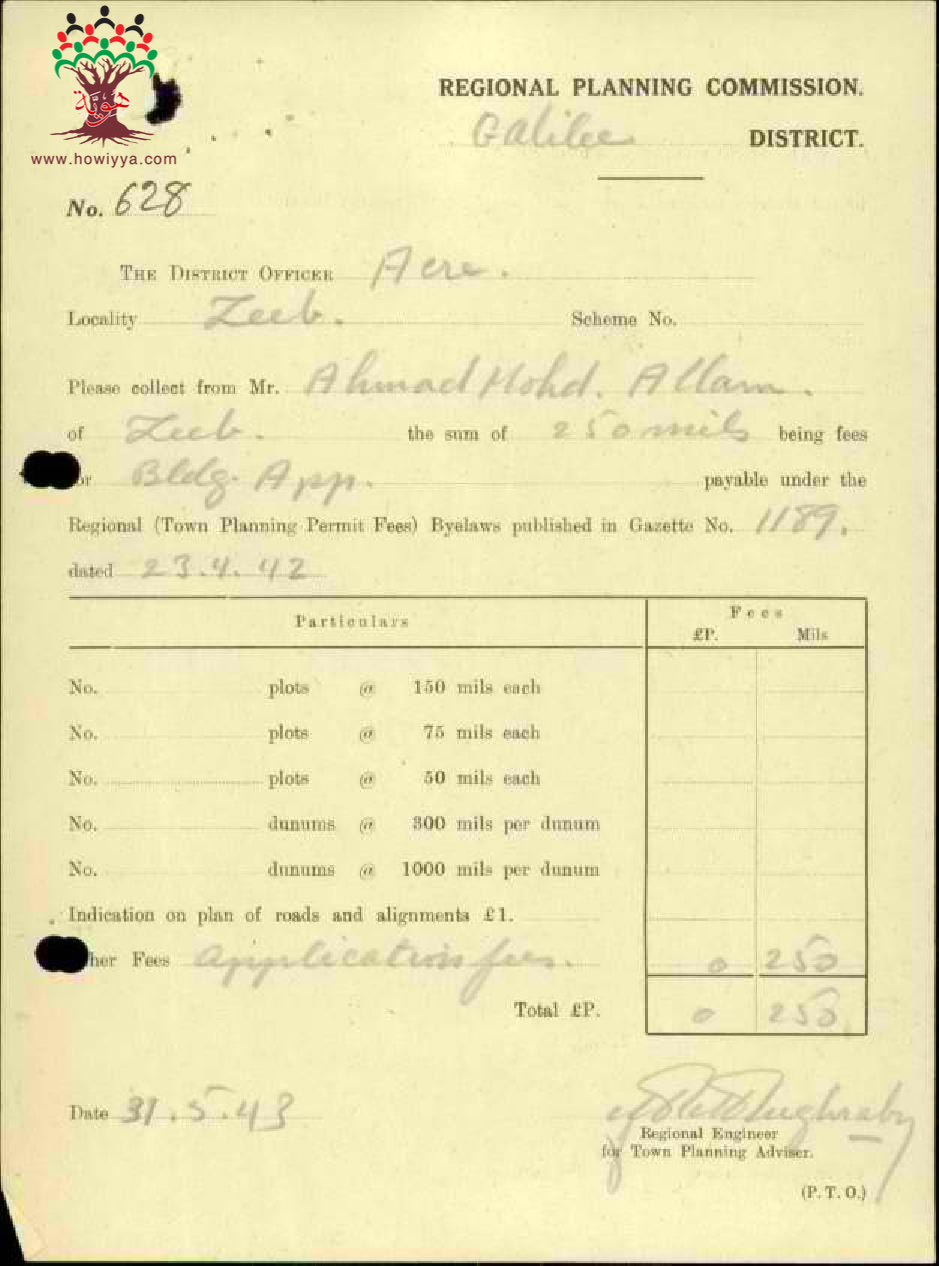 REGIONAL PLANNING COMMISSION.
Galilee DISTRICT.
هوية
www.howiyya.com
No. 628
THE DISTRICT OFFICER Acre.
Locality Zeeb. Scheme No.
Please collect from Mr. Ahmad Mohd. Allam.
of Zeeb. the sum of 250 mils being fees
or Bldg. App. payable under the
Regional (Town Planning Permit Fees) Byelaws published in Gazette No. 1189.
dated 23.4.42
Particulars Fees
£P. Mils
No. plots @ 150 mils each
No. plots @ 75 mils each
No. plots @ 50 mils each
No. dunums @ 300 mils per dunum
No. dunums @ 1000 mils per dunum
Indication on plan of roads and alignments £1.
her Fees application fees. 0 250
Total £P. 0 250
Date 31.5.43
Regional Engineer
for Town Planning Adviser.
(P. T. O.)